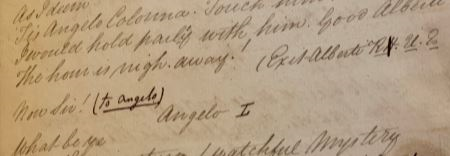 As I deem
Tis Angelo Colonna. Touch him
I would hold parley with him. Good Alberto
The hour is nigh. away! (Exit Alberto R.H. U. E.
Now Sir! (to Angelo)
Angelo I
What be ye
watchful Mystery